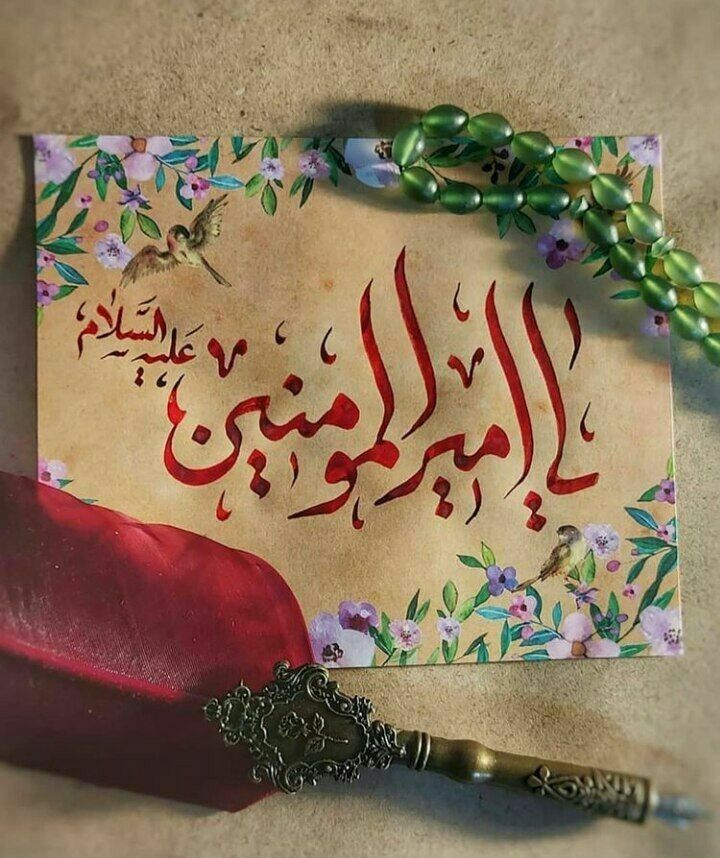 یا امیرالمومنین
عَلیهِ السَّلام